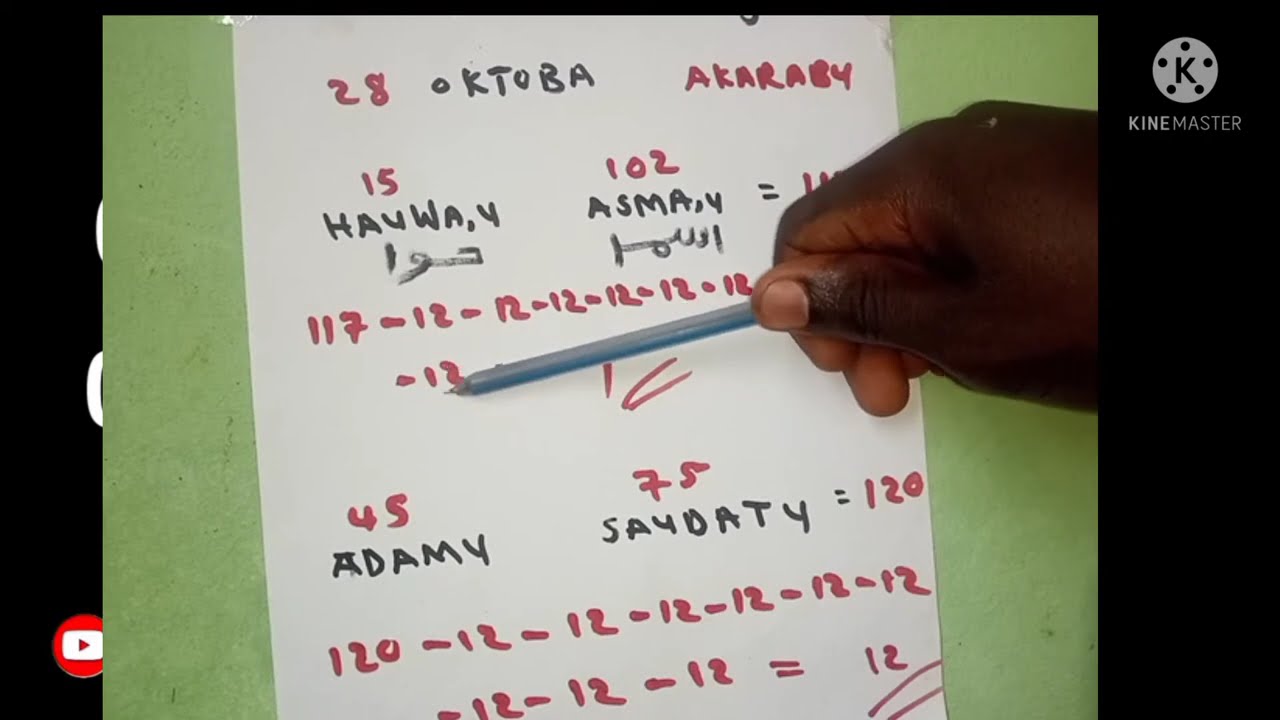 28 OKTOBA AKARABY
15 102
HAUWA,Y ASMA,Y =
حوا
117 - 12 - 12 - 12 - 12 - 12 - 12
- 12 1
45 75
ADAMY SAYDATY = 120
120 - 12 - 12 - 12 - 12 - 12 - 12
- 12 - 12 - 12 = 12
K
KINEMASTER